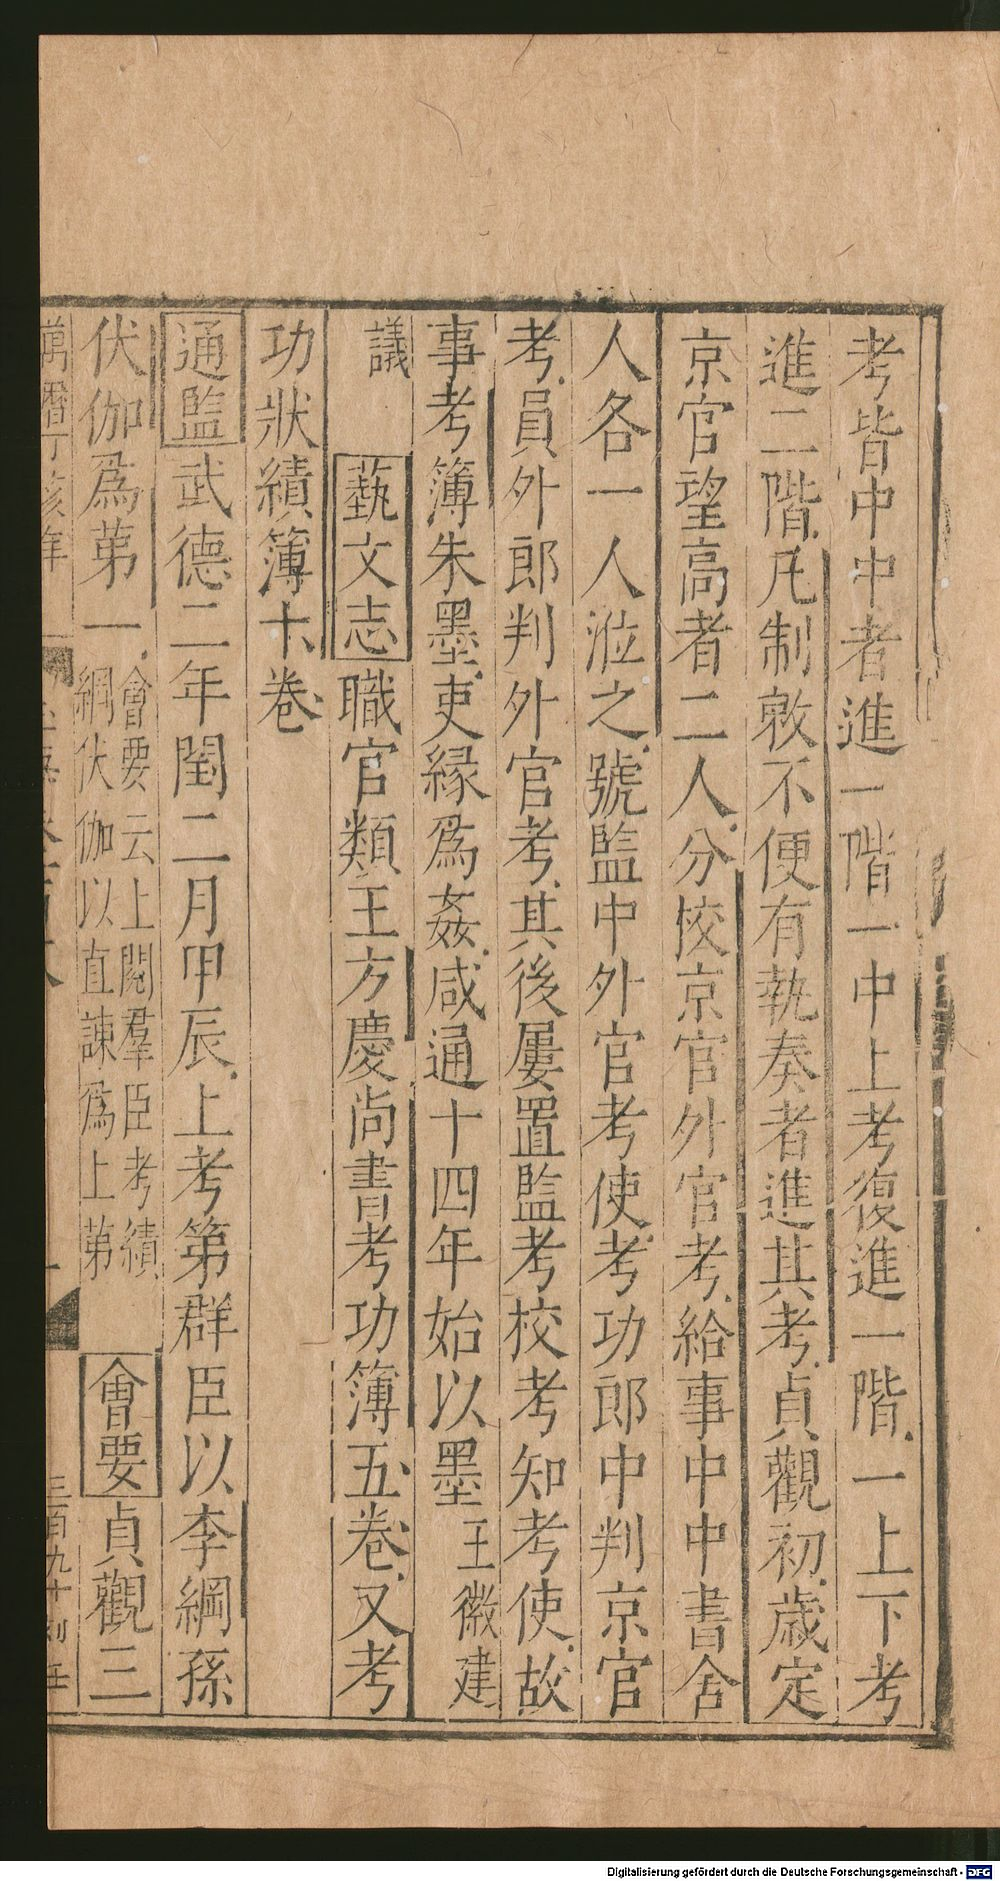 考皆中中者進一階一中上考復進一階一上下考
進二階凡制敕不便有執奏者進其考貞觀初歲定
京官望高者二人分校京官外官考給事中中書舍
人各一人涖之號監中外官考使考功郎中判京官
考員外郎判外官考其後屢置監考校考知考使故
事考簿朱墨吏緣爲姦咸通十四年始以墨王徽建
議 藝文志職官類王方慶尚書考功簿五卷又考
功狀績簿十卷
通監武德二年閏二月甲辰上考第群臣以李綱孫
伏伽爲第一會要云上閱羣臣考績綱伏伽以直諫爲上第 會要貞觀三
萬曆丁亥年 三百九十
Digitalisierung gefördert durch die Deutsche Forschungsgemeinschaft - DFG